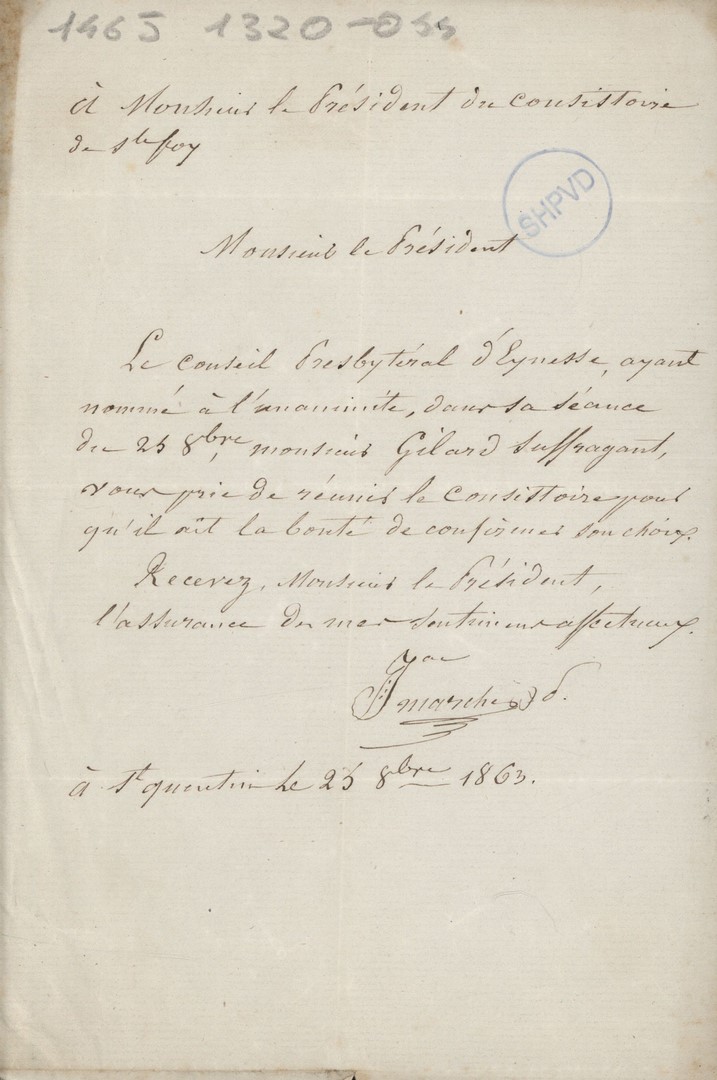 1465 1320-044
à Monsieur le Président du consistoire
de Ste foy
SHPVD
Monsieur le Président
Le conseil Presbytéral d'Eynesse, ayant
nommé à l'unanimité, dans sa séance
du 25 8bre, monsieur Gilard suffragant,
vous prie de réunir le consistoire pour
qu'il ait la bonté de confirmer son choix.
Recevez, Monsieur le Président,
l'assurance de mes sentimens affectueux.
à St quentin le 25 8bre 1863.